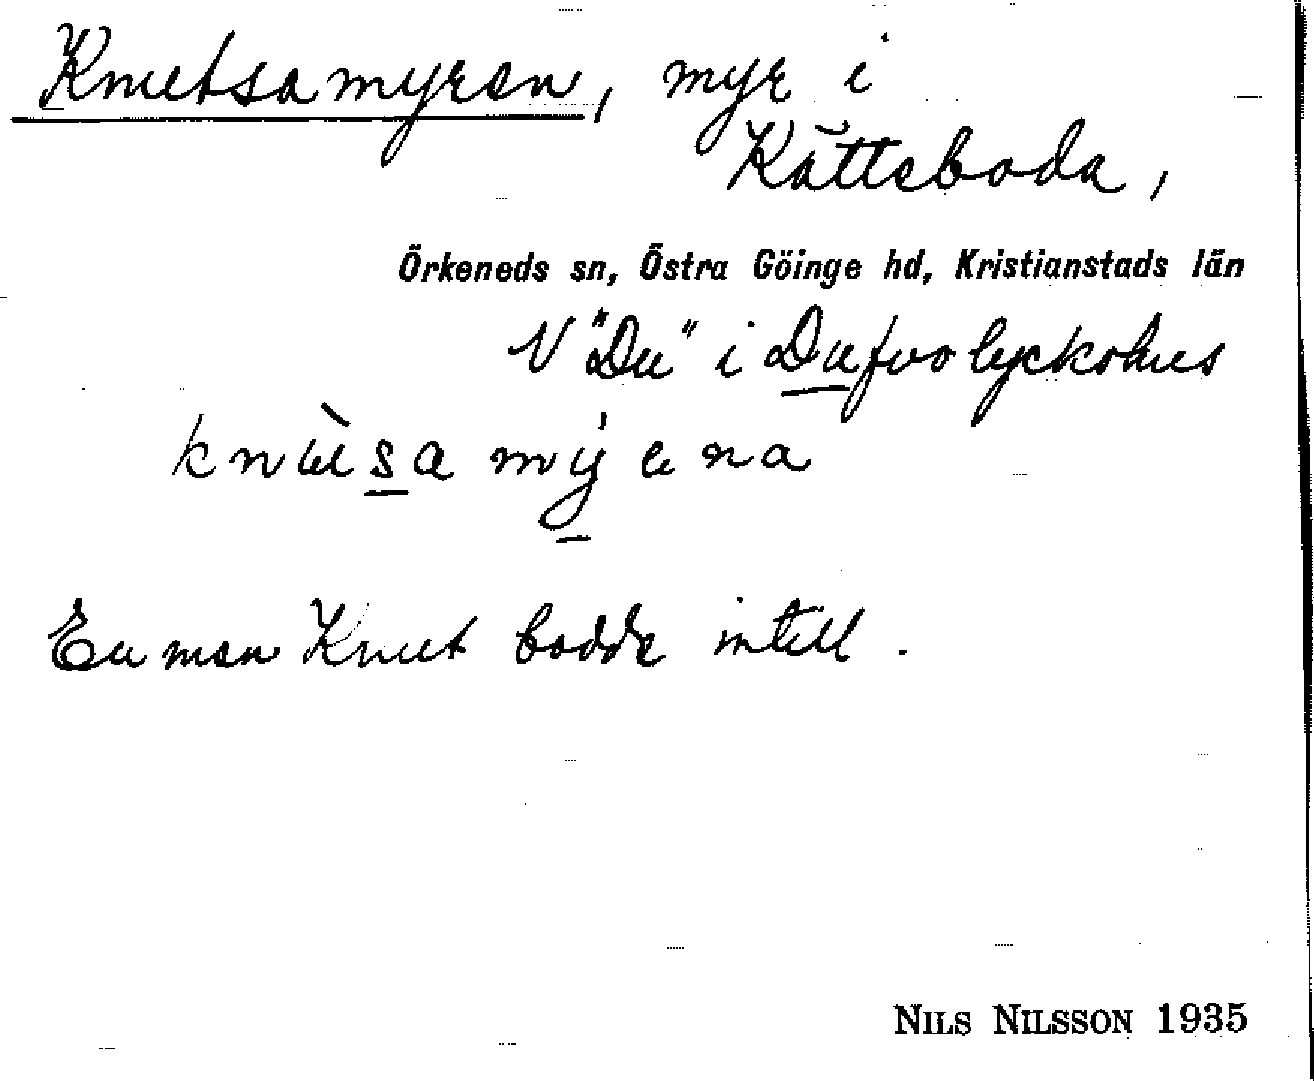 Knutsamyren, myr i
Kätteboda,
Örkeneds sn, Östra Göinge hd, Kristianstads län
V "Du" i Dufvolyckshus
knùsa mýena
En man Knut bodde intill.
NILS NILSSON 1935